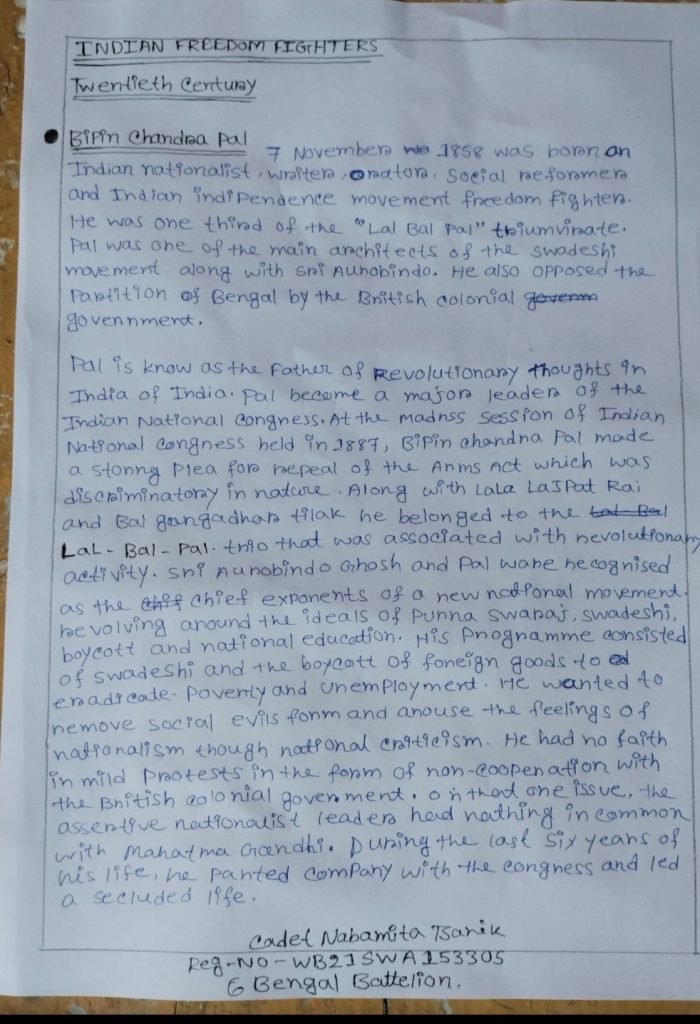 INDIAN FREEDOM FIGHTERS
Twentieth Century
Bipin Chandra Pal 7 November 1858 was born an
Indian nationalist, writer, orator, social reformer
and Indian indipendence movement freedom fighter.
He was one third of the "Lal Bal Pal" triumvirate.
Pal was one of the main architects of the swadeshi
movement along with sri Aurobindo. He also opposed the
Partition of Bengal by the British colonial goverm
government.
Pal is know as the Father of Revolutionary thoughts in
India of India. Pal became a major leader of the
Indian National Congress. At the madrss session of Indian
National Congress held in 1887, Bipin chandra Pal made
a storng plea for repeal of the Arms Act which was
discriminatory in nature. Along with Lala Lajpat Rai
and Bal gangadhar tilak he belonged to the Lal-Bal
Lal-Bal-Pal. trio that was associated with revolutionary
activity. sri Aurobindo Ghosh and Pal ware recognised
as the chif chief exponents of a new national movement.
revolving around the ideals of Purna swaraj, swadeshi,
boycott and national education. His Programme consisted
of swadeshi and the boycott of foreign goods to
eradicate. Poverty and unemployment. He wanted to
remove social evils form and arouse the feelings of
nationalism though national criticism. He had no faith
in mild protests in the form of non-cooperation with
the British colonial goverment. on that one issue, the
assertive nationalist leader had nathing in common
with Mahatma Gandhi. During the last six years of
his life, he parted company with the congress and led
a secluded life.
Cadet Nabamita Banik
Reg-No-WB21SWA153305
6 Bengal Battelion.